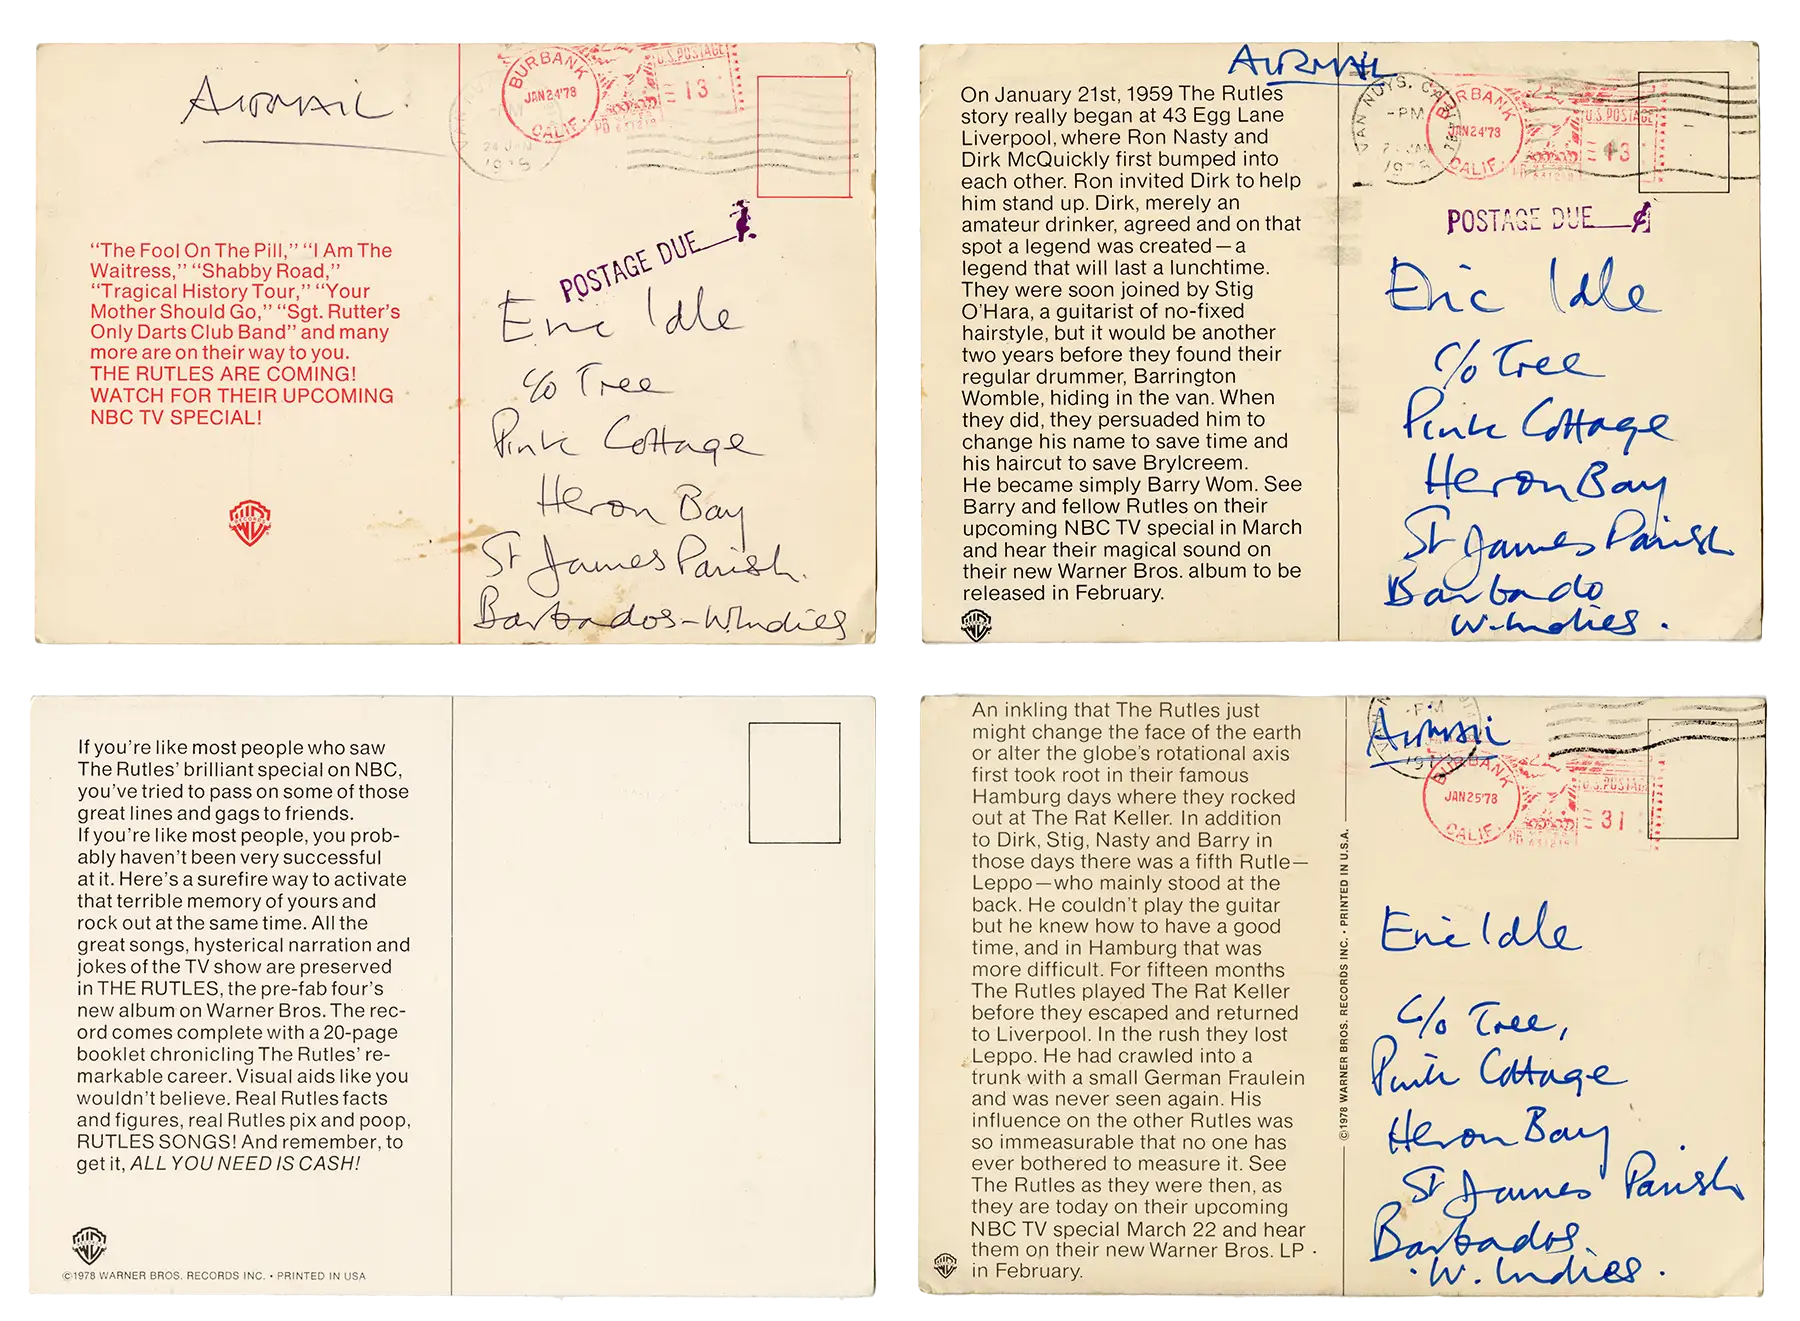 AIRMAIL.
BURBANK
JAN 24 '78
CALIF.
U.S. POSTAGE
13
24 JAN
1978
"The Fool On The Pill," "I Am The
Waitress," "Shabby Road,"
"Tragical History Tour," "Your
Mother Should Go," "Sgt. Rutter's
Only Darts Club Band" and many
more are on their way to you.
THE RUTLES ARE COMING!
WATCH FOR THEIR UPCOMING
NBC TV SPECIAL!
POSTAGE DUE
Eric Idle
c/o Tree
Pink Cottage
Heron Bay
St James Parish.
Barbados - W. Indies
AIRMAIL
On January 21st, 1959 The Rutles
story really began at 43 Egg Lane
Liverpool, where Ron Nasty and
Dirk McQuickly first bumped into
each other. Ron invited Dirk to help
him stand up. Dirk, merely an
amateur drinker, agreed and on that
spot a legend was created—a
legend that will last a lunchtime.
They were soon joined by Stig
O'Hara, a guitarist of no-fixed
hairstyle, but it would be another
two years before they found their
regular drummer, Barrington
Womble, hiding in the van. When
they did, they persuaded him to
change his name to save time and
his haircut to save Brylcreem.
He became simply Barry Wom. See
Barry and fellow Rutles on their
upcoming NBC TV special in March
and hear their magical sound on
their new Warner Bros. album to be
released in February.
VAN NUYS, CA
-PM
JAN
1978
BURBANK
JAN 24 '78
CALIF.
U.S. POSTAGE
13
POSTAGE DUE ¢
Eric Idle
c/o Tree
Pink Cottage
Heron Bay
St James Parish
Barbado
W. Indies.
If you're like most people who saw
The Rutles' brilliant special on NBC,
you've tried to pass on some of those
great lines and gags to friends.
If you're like most people, you prob-
ably haven't been very successful
at it. Here's a surefire way to activate
that terrible memory of yours and
rock out at the same time. All the
great songs, hysterical narration and
jokes of the TV show are preserved
in THE RUTLES, the pre-fab four's
new album on Warner Bros. The rec-
ord comes complete with a 20-page
booklet chronicling The Rutles' re-
markable career. Visual aids like you
wouldn't believe. Real Rutles facts
and figures, real Rutles pix and poop,
RUTLES SONGS! And remember, to
get it, ALL YOU NEED IS CASH!
©1978 WARNER BROS. RECORDS INC. • PRINTED IN USA
An inkling that The Rutles just
might change the face of the earth
or alter the globe's rotational axis
first took root in their famous
Hamburg days where they rocked
out at The Rat Keller. In addition
to Dirk, Stig, Nasty and Barry in
those days there was a fifth Rutle—
Leppo—who mainly stood at the
back. He couldn't play the guitar
but he knew how to have a good
time, and in Hamburg that was
more difficult. For fifteen months
The Rutles played The Rat Keller
before they escaped and returned
to Liverpool. In the rush they lost
Leppo. He had crawled into a
trunk with a small German Fraulein
and was never seen again. His
influence on the other Rutles was
so immeasurable that no one has
ever bothered to measure it. See
The Rutles as they were then, as
they are today on their upcoming
NBC TV special March 22 and hear
them on their new Warner Bros. LP
in February.
©1978 WARNER BROS. RECORDS INC. • PRINTED IN U.S.A.
AIRMAIL
-PM
BURBANK
JAN 25 '78
CALIF.
U.S. POSTAGE
31
Eric Idle
c/o Tree,
Pink Cottage
Heron Bay
St James Parish
Barbados.
W. Indies.